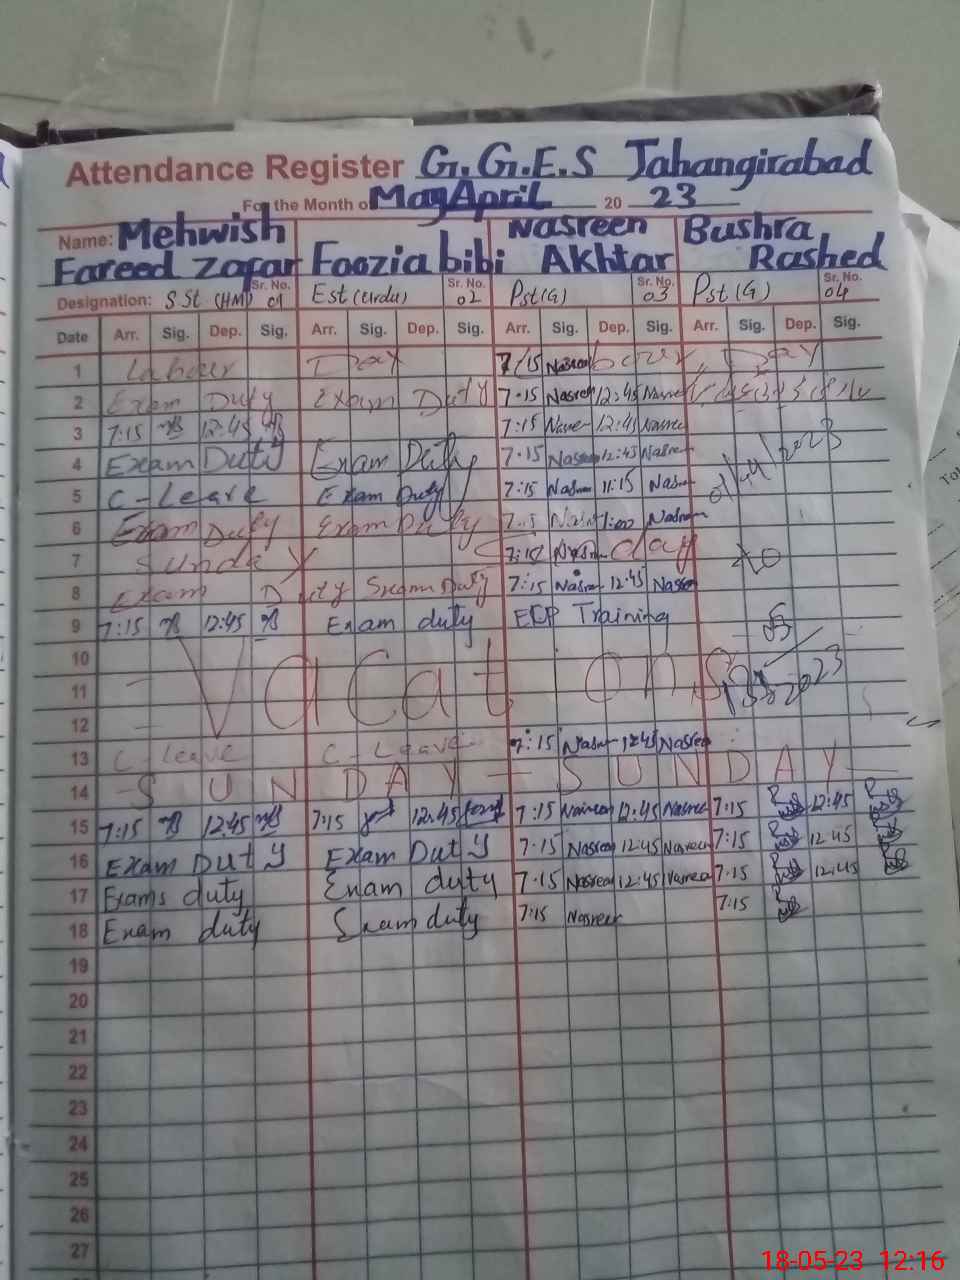 Attendance Register G.G.E.S Jahangirabad
For the Month of May April 20 23
Name: Mehwish Fareed Zafar Foozia bibi Nasreen Akhtar Bushra Rashed
Designation: S St (HM) Sr. No. 01 Est (Urdu) Sr. No. 02 Pst (G) Sr. No. 03 Pst (G) Sr. No. 04
Date Arr. Sig. Dep. Sig. Arr. Sig. Dep. Sig. Arr. Sig. Dep. Sig. Arr. Sig. Dep. Sig.
1 Labour Day 7/15 Nasreen Day
2 Exam Duty Exam Duty 7.15 Nasreen 12:45 Nasreen
3 7:15 12:45 7:15 12:45 Nasree
4 Exam Duty Exam Duty 7.15 12:45
5 C-Leave Exam Duty 7:15 11:15
6 Exam Duty Exam Duty
7 Sunday 7:15 day
8 Exam Duty Exam Duty 7:15 12:45 to
9 7:15 12:45 Exam duty Training 05
10 Vacations
11 2023
12
13 C-Leave C-Leave 7:15 12:45 Nasreen
14 - SUNDAY - SUNDAY -
15 7:15 12:45 7:15 12:45 7:15 Nasreen 12:45 Nasree 7:15 12:45
16 Exam Duty Exam Duty 7:15 Nasreen 12:45 Nasreen 7:15 12:45
17 Exams duty Exam duty 7:15 Nasreen 12:45 Nasreen 7.15 12:45
18 Exam duty Exam duty 7:15 Nasreen 7:15
19
20
21
22
23
24
25
26
27
18-05-23 12:16